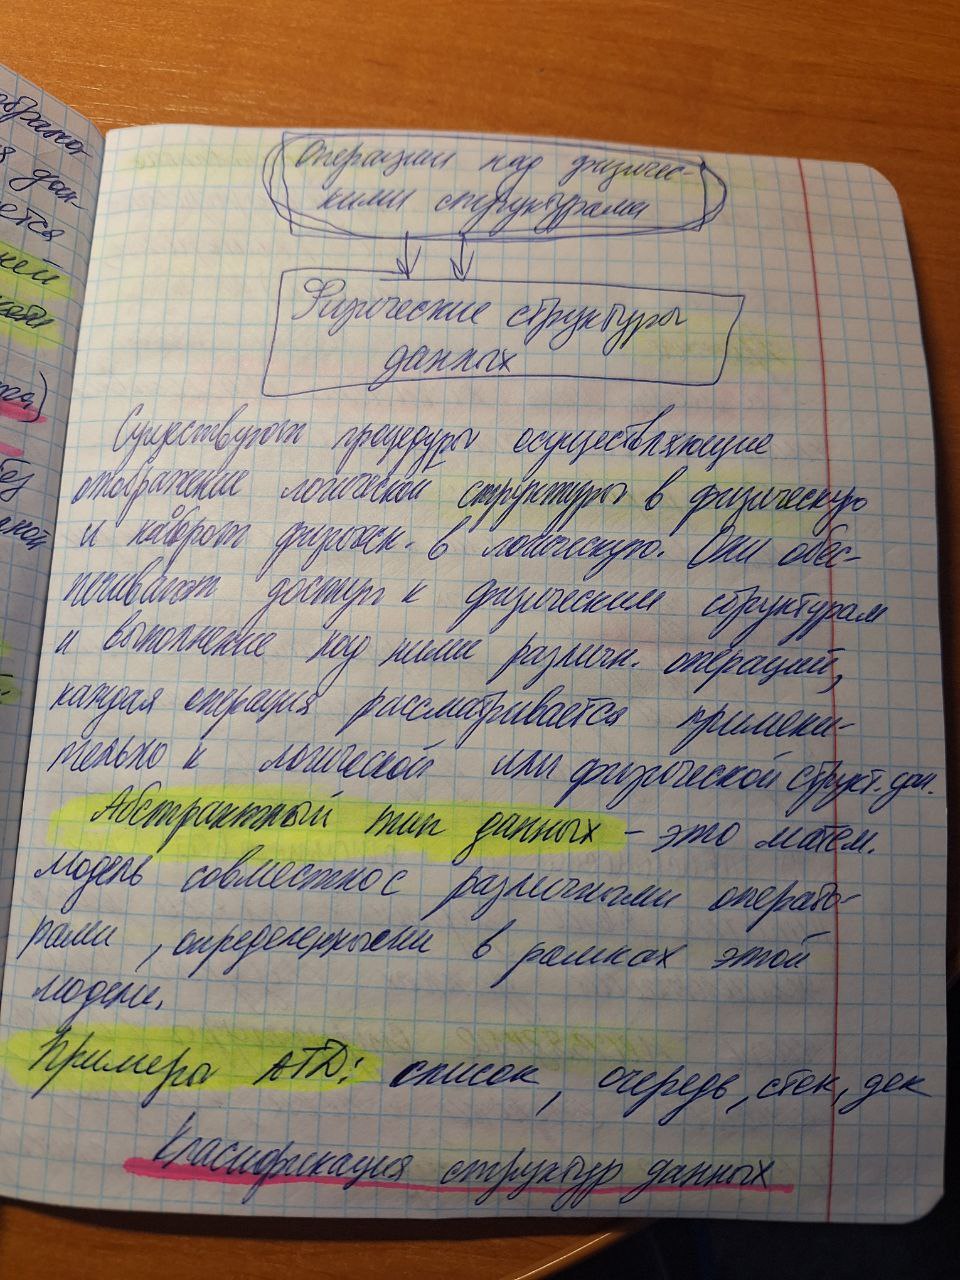 Операции над физичес-
кими структурами
Физические структуры
данных
Существуют процедуры осуществляющие
отображение логической структуры в физическую
и наоборот физическ. в логическую. Они обес-
печивают доступ к физическим структурам
и выполнение над ними различн. операций,
каждая операция рассматривается примени-
тельно к логической или физической структ. дан.
Абстрактный тип данных – это матем.
модель совместно с различными операто-
рами, определенными в рамках этой
модели.
Примеры АТД: список, очередь, стек, дек
Класификация структур данных